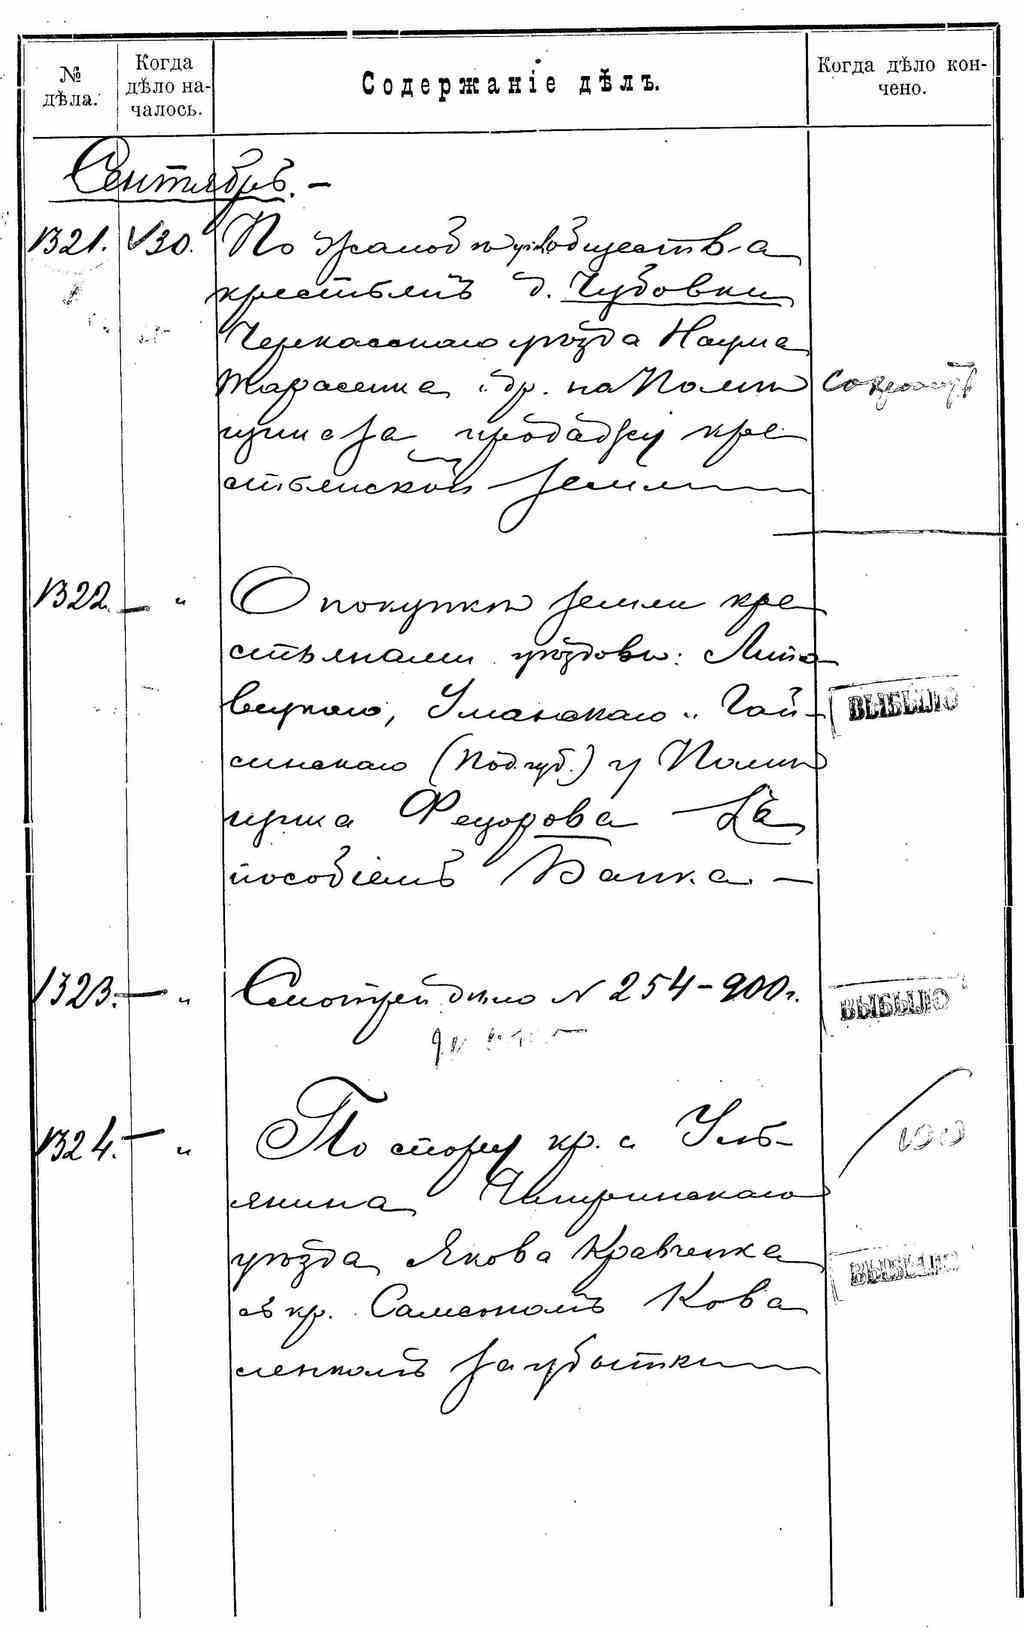 № дѣла.
Когда дѣло началось.
Содержаніе дѣлъ.
Когда дѣло кончено.
Сентябрь. –
1321. 30. По жалобѣ общества
крестьянъ д. Чубовки
Черкасскаго уѣзда Наума
Тарасенка и др. на Помѣ
щика за продажу кре
стьянской земли
1322. — " О покупкѣ земли кре
стьянами уѣздовъ: Липо
вецкаго, Уманскаго и Гай-
синскаго (Под. губ.) у Помѣ
щика Федорова съ
пособіемъ Банка. –
ВЫБЫЛО
1323. — " Смотрей дѣло N 254-900 г.
ВЫБЫЛО
1324. — " По спору кр. с. Уль-
янина Чигиринскаго
уѣзда Якова Кравченка
съ кр. Самсономъ Кова
ленкомъ за убытки
ВЫБЫЛО